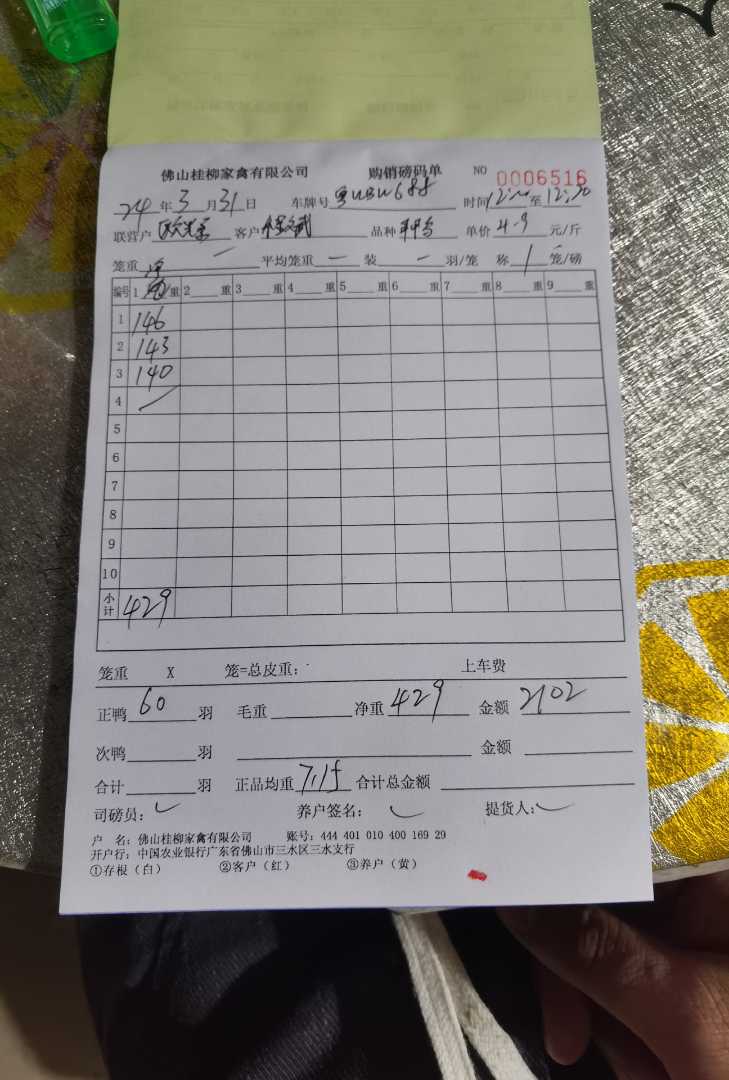 佛山桂柳家禽有限公司 购销磅码单 NO 0006516
24 年 3 月 31 日 车牌号 时间 至 12:20
联营户 客户 品种 单价 4.9 元/斤
笼重 平均笼重 — 装 — 羽/笼 称 1 笼/磅
编号 1 净重 2 重 3 重 4 重 5 重 6 重 7 重 8 重 9 重
1 146
2 143
3 140
4
5
6
7
8
9
10
小计 429
笼重 X 笼=总皮重: 上车费
正鸭 60 羽 毛重 净重 429 金额 2102
次鸭 羽 金额
合计 羽 正品均重 7.15 合计总金额
司磅员: 养户签名: 提货人:
户 名: 佛山桂柳家禽有限公司 账号: 444 401 010 400 169 29
开户行: 中国农业银行广东省佛山市三水区三水支行
①存根(白) ②客户(红) ③养户(黄)